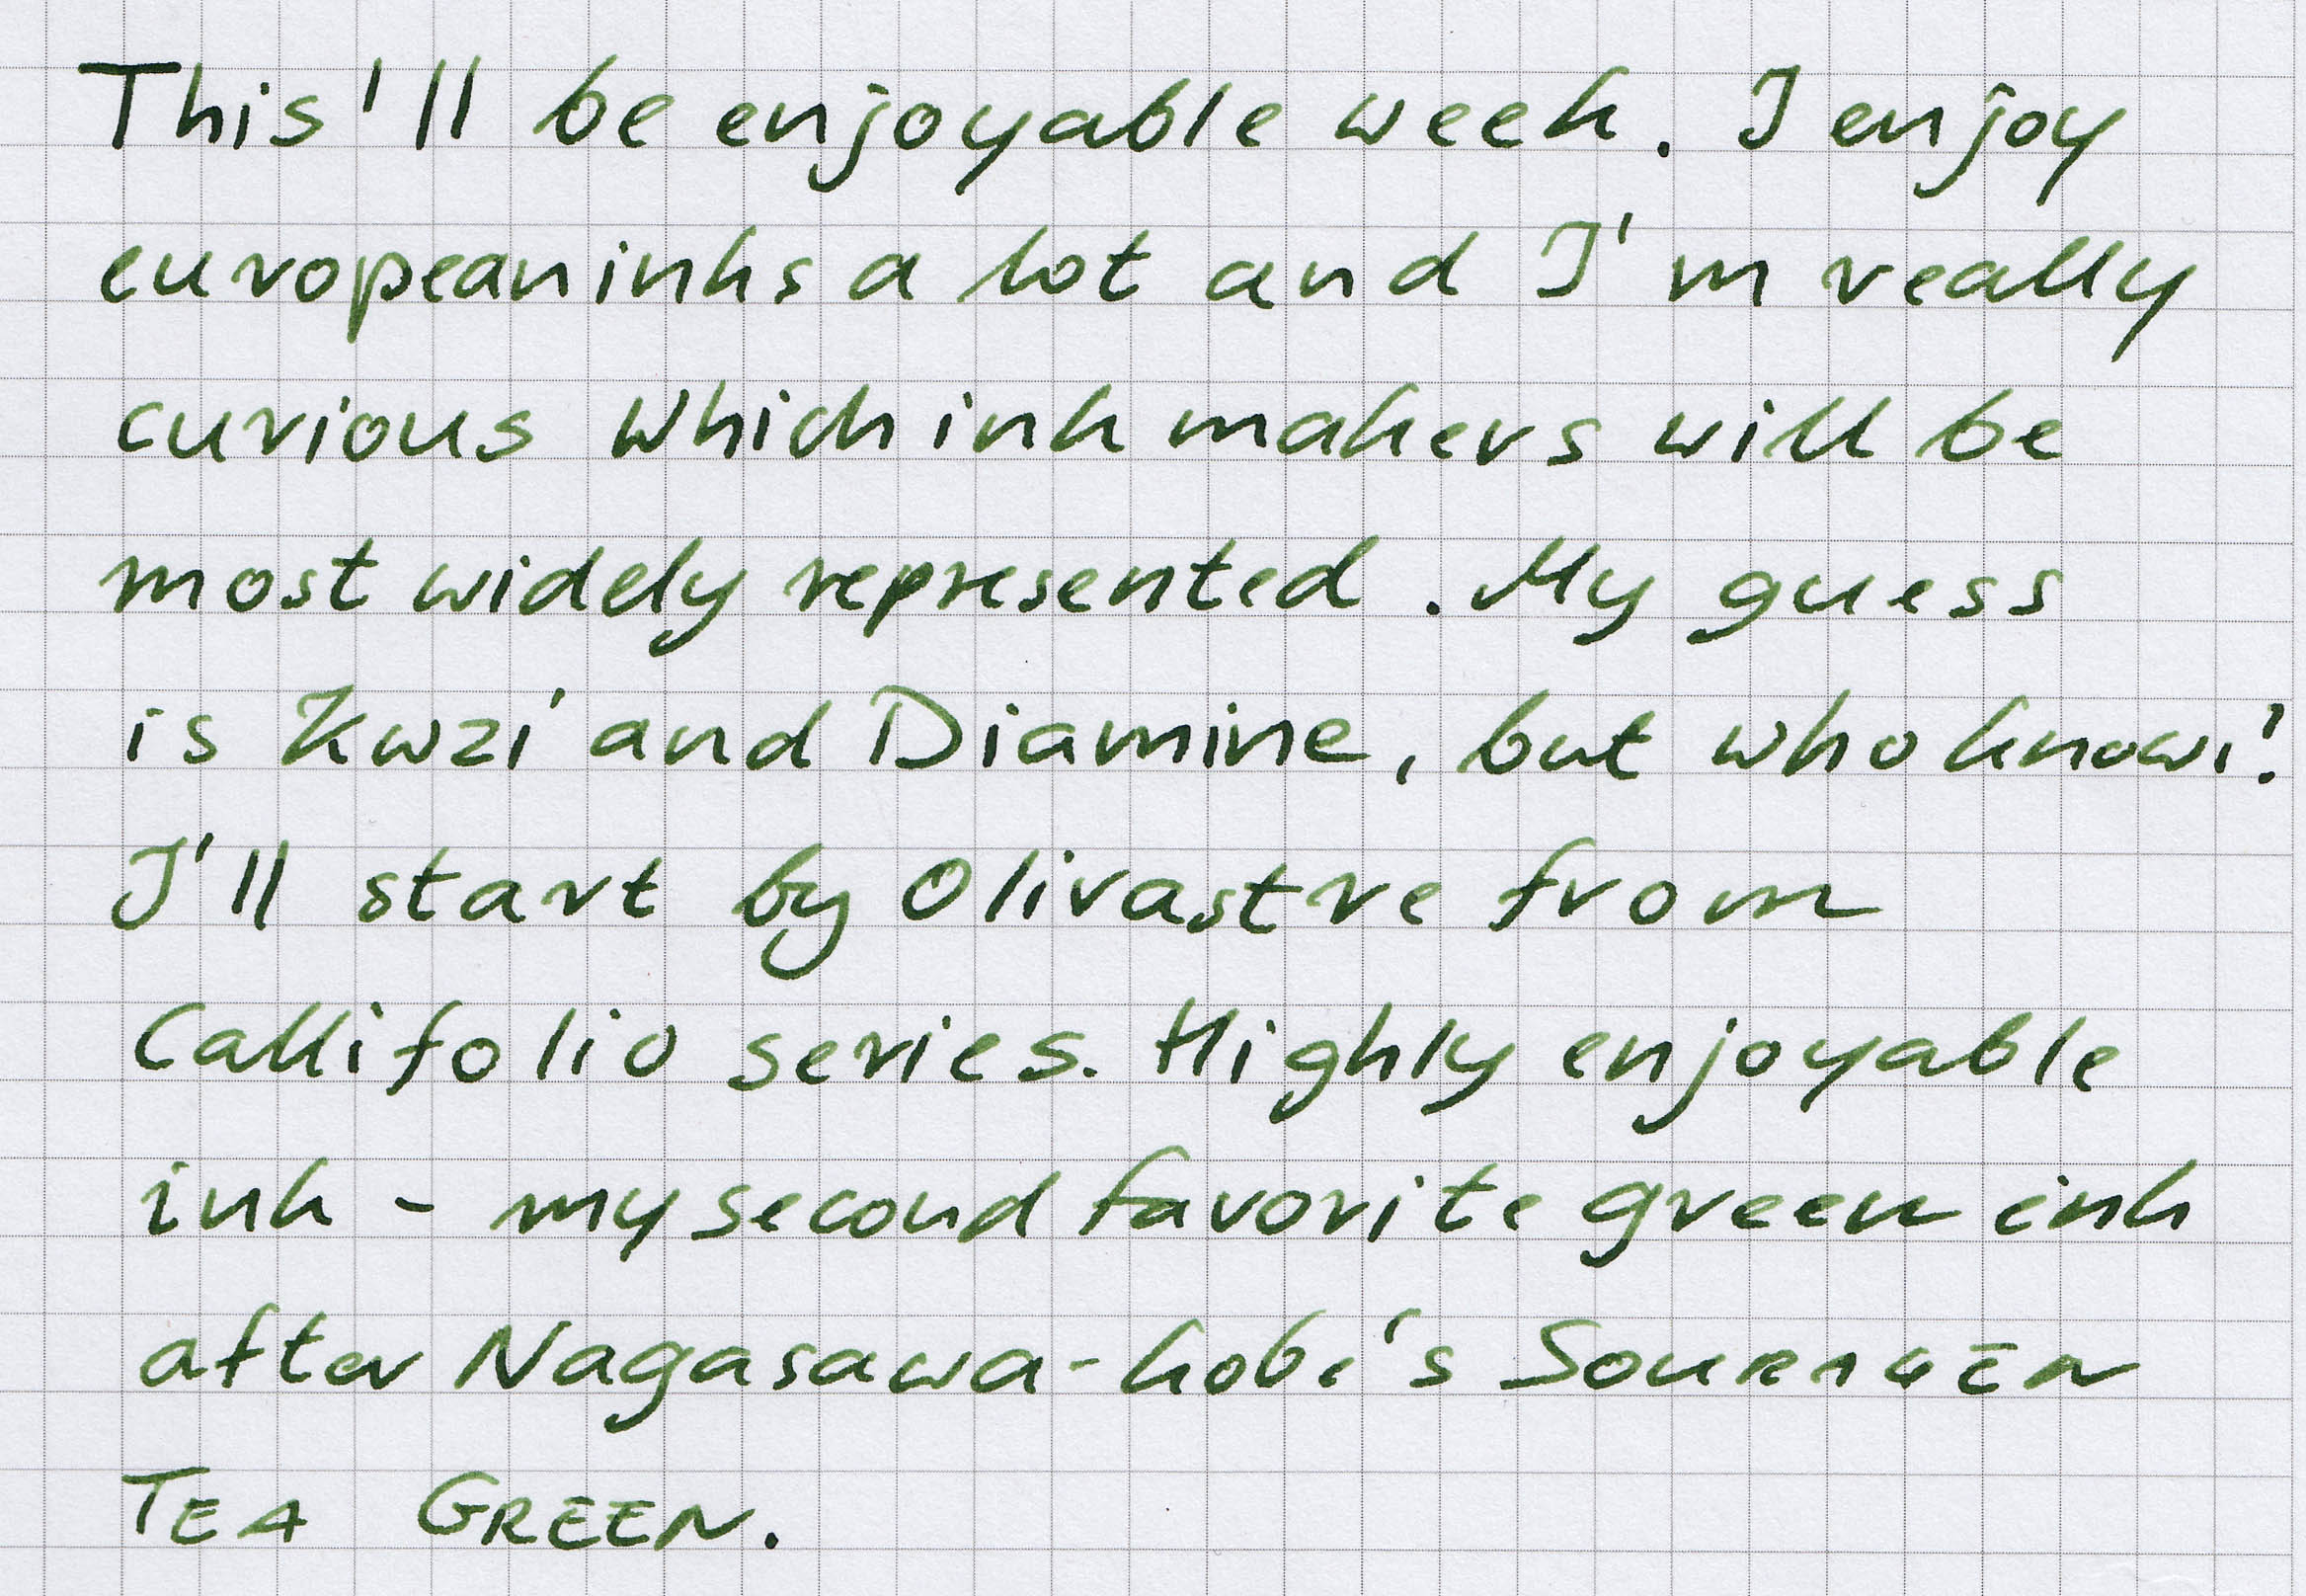 This'll be enjoyable week. I enjoy
european inks a lot and I'm really
curious which ink makers will be
most widely represented. My guess
is Kwzi and Diamine, but who knows?
I'll start by Olivastre from
Callifolio series. Highly enjoyable
ink - my second favorite green ink
after Nagasawa-kobe's
TEA GREEN.